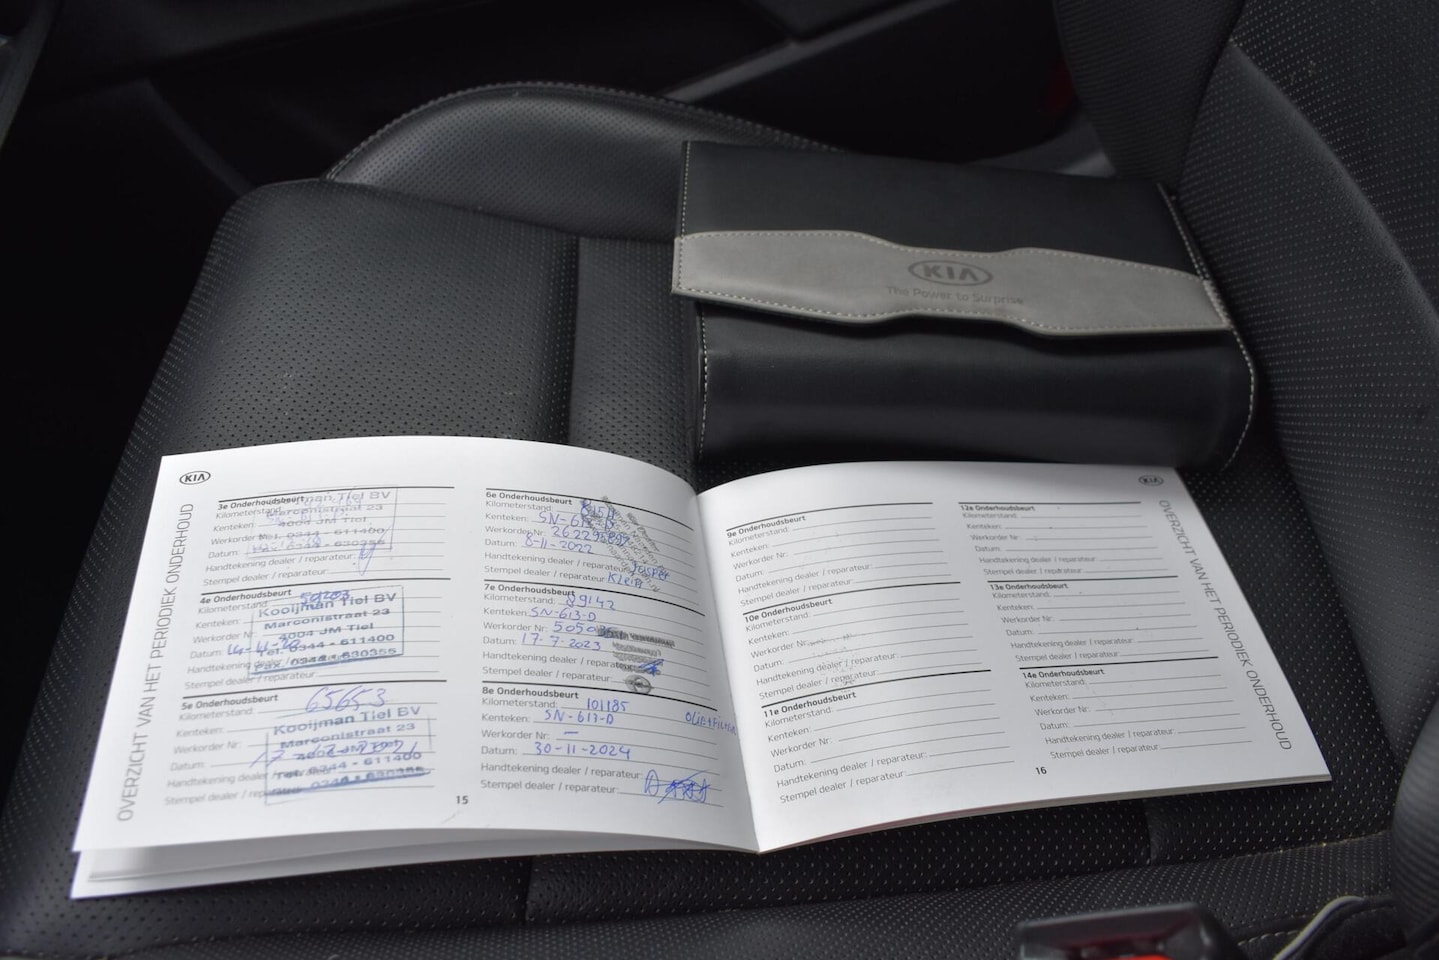 KIA
The Power to Surprise
KIA
OVERZICHT VAN HET PERIODIEK ONDERHOUD
3e Onderhoudsbeurt
Kilometerstand:
Kenteken:
Werkorder Nr:
Datum:
Handtekening dealer / reparateur:
Stempel dealer / reparateur:
Kooijman Tiel BV
Marconistraat 23
4004 JM Tiel
Tel. 0344 - 611400
Fax. 0344 - 630355
4e Onderhoudsbeurt
Kilometerstand:
Kenteken:
Werkorder Nr:
Datum:
Handtekening dealer / reparateur:
Stempel dealer / reparateur:
Kooijman Tiel BV
Marconistraat 23
4004 JM Tiel
Tel. 0344 - 611400
Fax. 0344 - 630355
5e Onderhoudsbeurt
Kilometerstand: 65653
Kenteken:
Werkorder Nr:
Datum:
Handtekening dealer / reparateur:
Stempel dealer / reparateur:
Kooijman Tiel BV
Marconistraat 23
4004 JM Tiel
Tel. 0344 - 611400
Fax. 0344 - 630355
6e Onderhoudsbeurt
Kilometerstand:
Kenteken: SN-613-D
Werkorder Nr:
Datum: 8-11-2022
Handtekening dealer / reparateur: Jasper
Stempel dealer / reparateur: Klein
7e Onderhoudsbeurt
Kilometerstand: 89142
Kenteken: SN-613-D
Werkorder Nr:
Datum: 17-7-2023
Handtekening dealer / reparateur:
Stempel dealer / reparateur:
8e Onderhoudsbeurt
Kilometerstand: 101185
Kenteken: SN-613-D
Olie+Filter
Werkorder Nr: —
Datum: 30-11-2024
Handtekening dealer / reparateur:
Stempel dealer / reparateur:
15
9e Onderhoudsbeurt
Kilometerstand:
Kenteken:
Werkorder Nr:
Datum:
Handtekening dealer / reparateur:
Stempel dealer / reparateur:
10e Onderhoudsbeurt
Kilometerstand:
Kenteken:
Werkorder Nr:
Datum:
Handtekening dealer / reparateur:
Stempel dealer / reparateur:
11e Onderhoudsbeurt
Kilometerstand:
Kenteken:
Werkorder Nr:
Datum:
Handtekening dealer / reparateur:
Stempel dealer / reparateur:
12e Onderhoudsbeurt
Kilometerstand:
Kenteken:
Werkorder Nr:
Datum:
Handtekening dealer / reparateur:
Stempel dealer / reparateur:
13e Onderhoudsbeurt
Kilometerstand:
Kenteken:
Werkorder Nr:
Datum:
Handtekening dealer / reparateur:
Stempel dealer / reparateur:
14e Onderhoudsbeurt
Kilometerstand:
Kenteken:
Werkorder Nr:
Datum:
Handtekening dealer / reparateur:
Stempel dealer / reparateur:
16
KIA
OVERZICHT VAN HET PERIODIEK ONDERHOUD